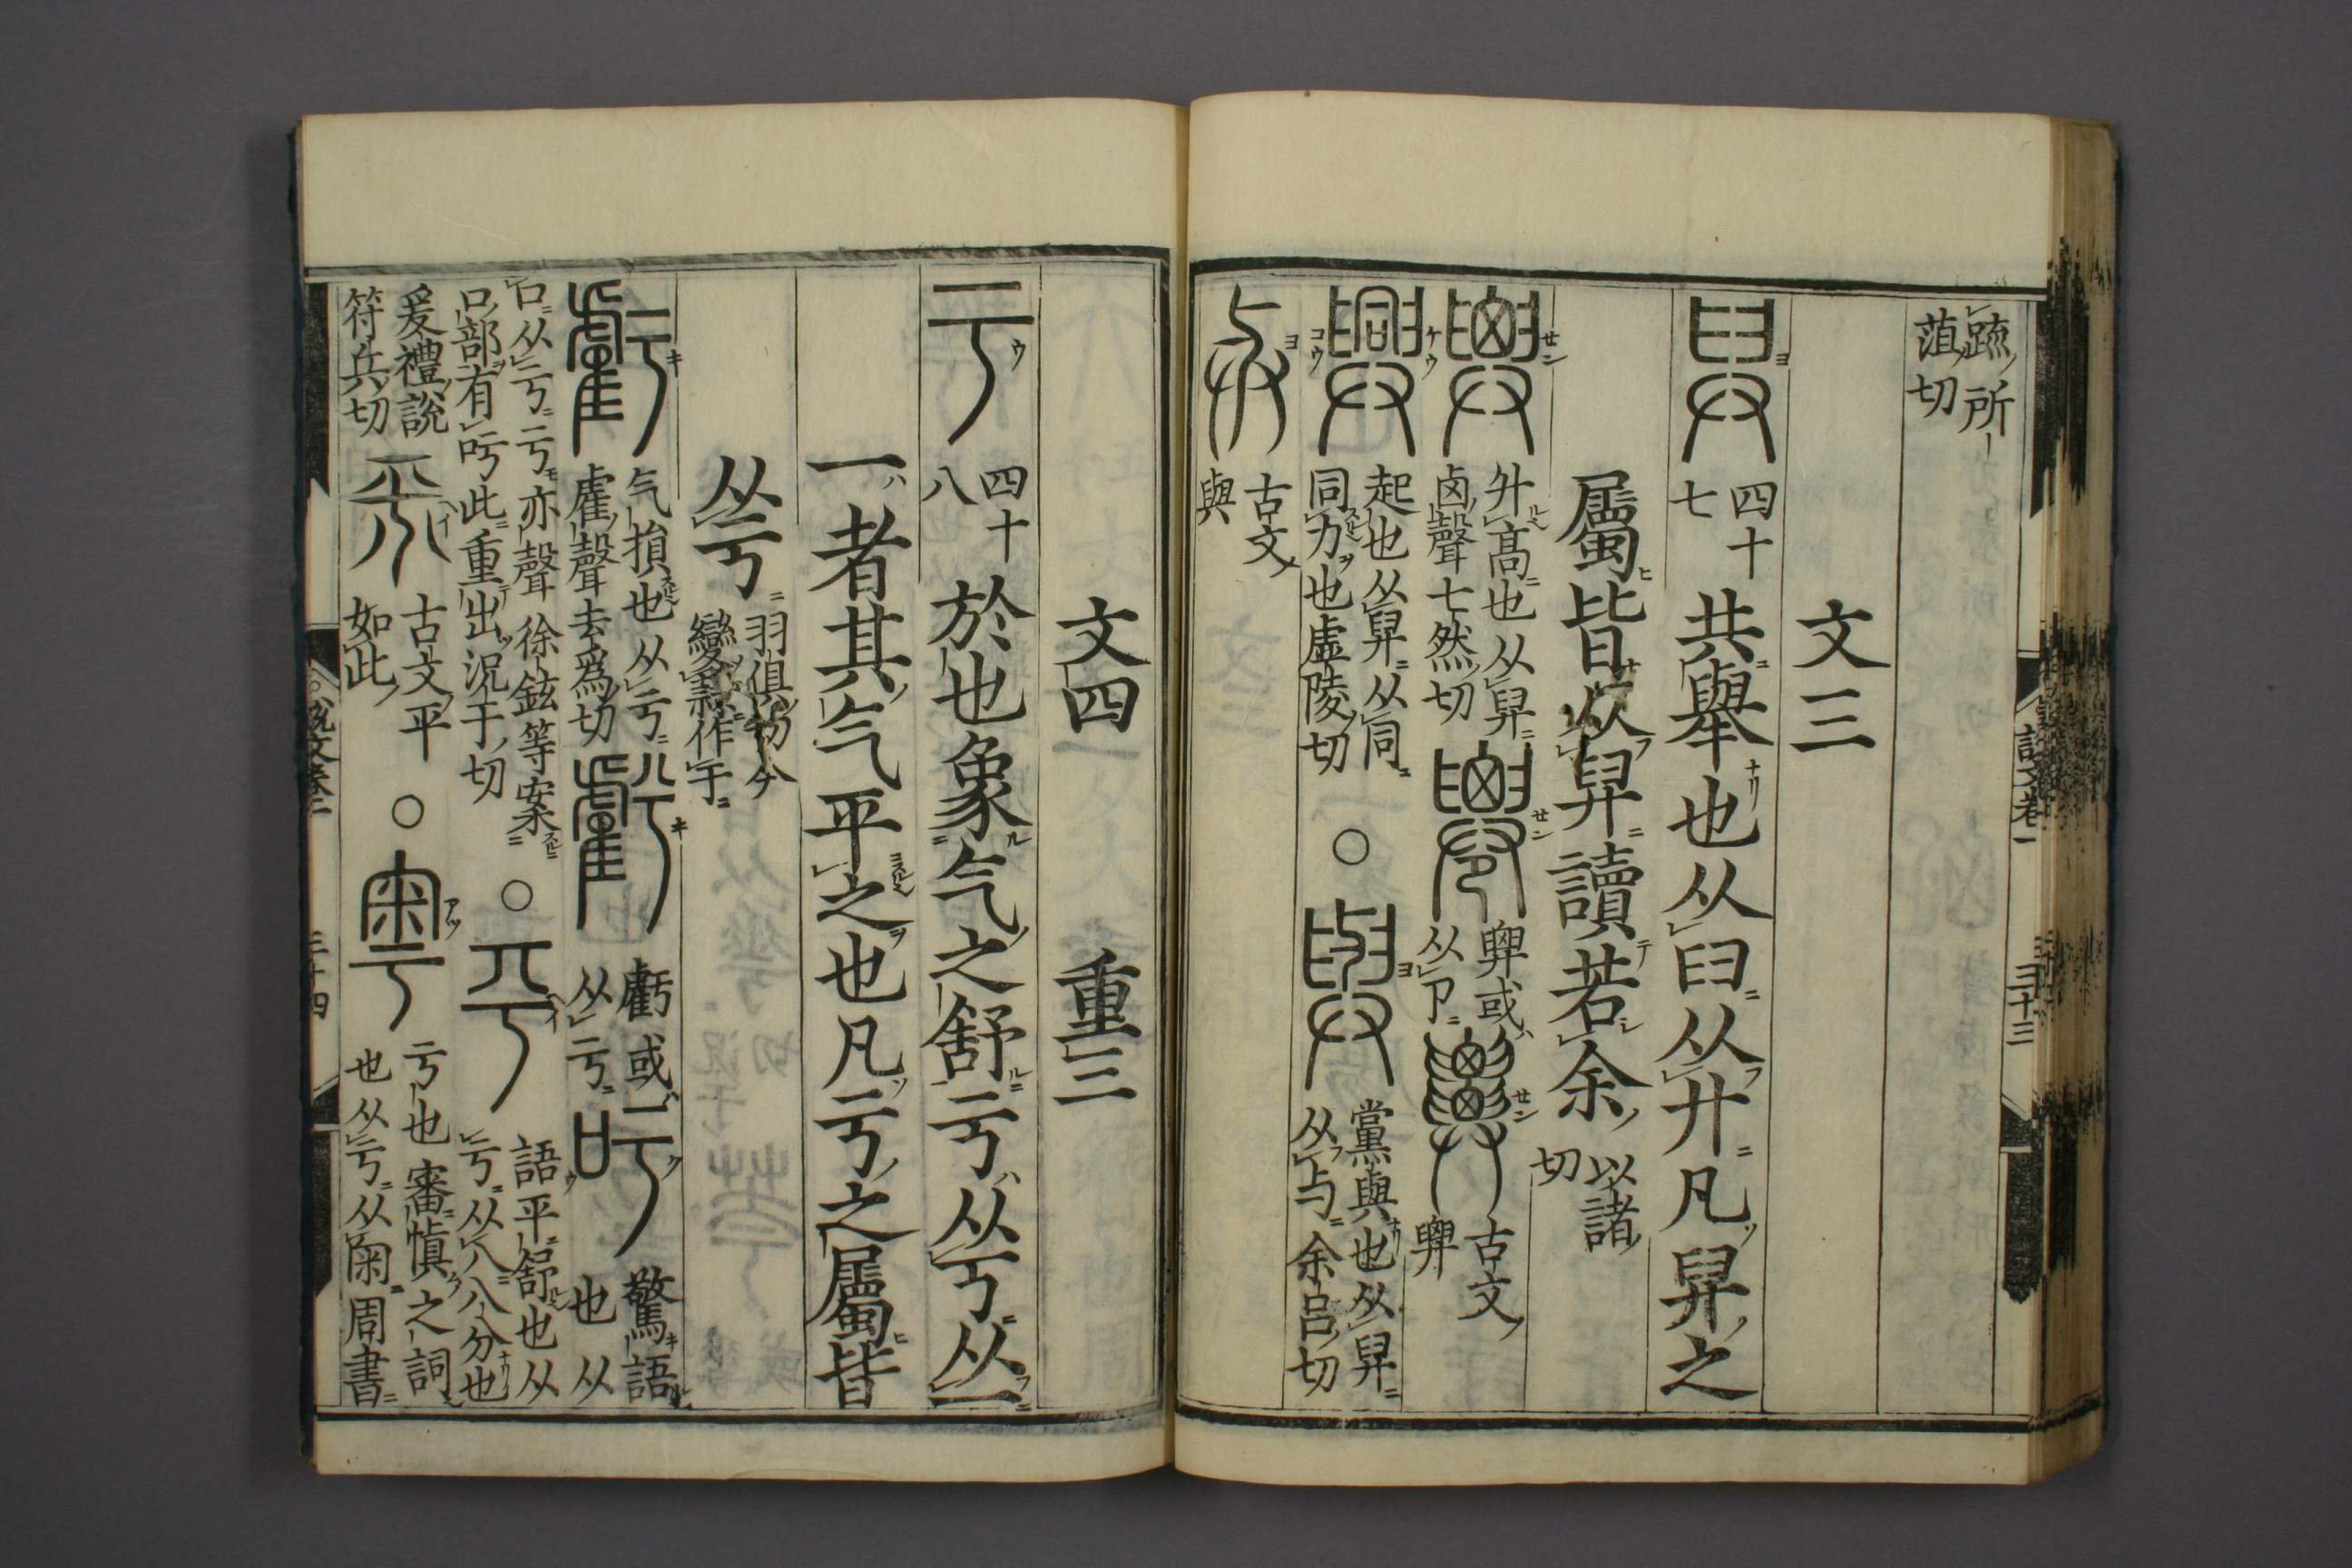 疏所
葅切
文三
四十
七
共舉也从𦥑从廾凡舁之
屬皆从舁讀若余
以諸
切
升髙也从舁
囟聲七然切
𢍱或
从卩
古文
𢍱
起也从舁从同
同力也虛陵切
○
黨與也从舁
从与余呂切
古文
與
文四 重三
四十
八
於也象气之舒亏从丂从一
一者其气平之也凡亏之屬皆
从亏
羽俱切今
變隷作于
气損也从亏
雐聲去爲切
虧或
从亏
驚語
也从
口从亏亏亦聲徐鉉等案
口部有吁此重出況于切
○
語平舒也从
亏从八八分也
爰禮說
符兵切
古文平
如此
○
亏也審愼之詞
也从亏从宷周書
說文卷一
三十三
說文卷二
三十四